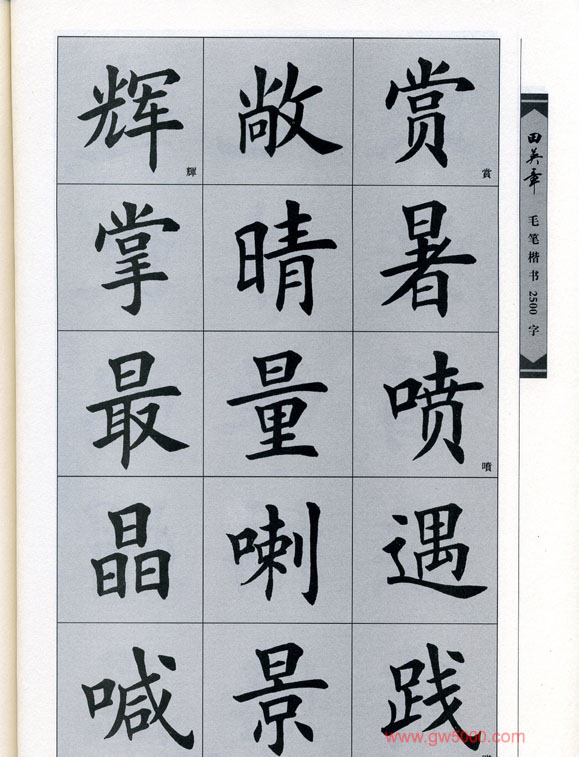 辉 輝 敞 赏 賞
掌 晴 暑
最 量 喷 噴
晶 喇 遇
喊 景 践
田英章
毛笔楷书2500字
www.gw5000.com